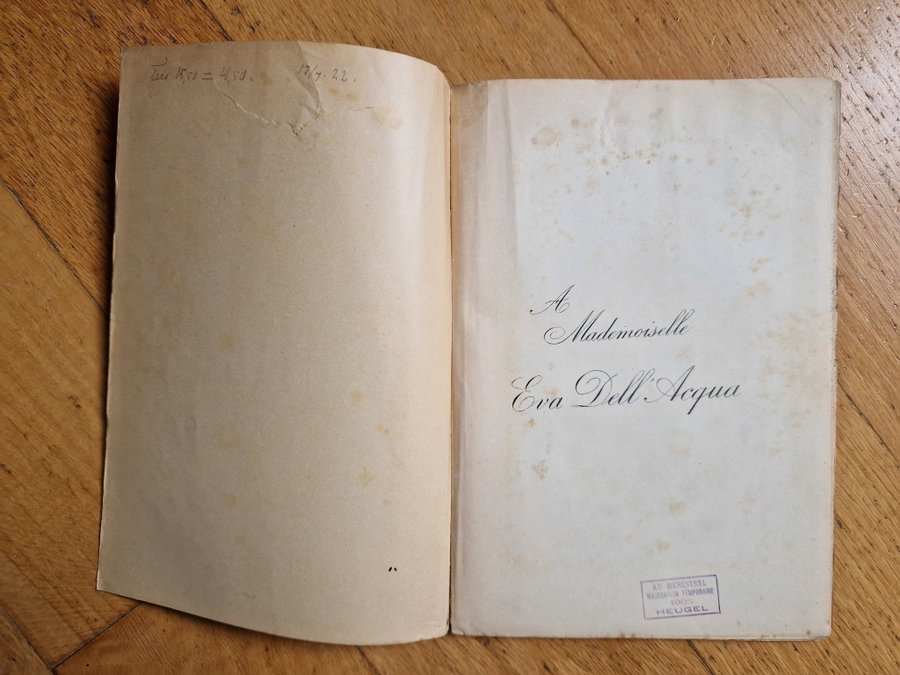 15,50 = 4,50. 17/7. 22.
A
Mademoiselle
Eva Dell'Acqua
AU MÉNESTREL
MAJORATION TEMPORAIRE
100%
HEUGEL